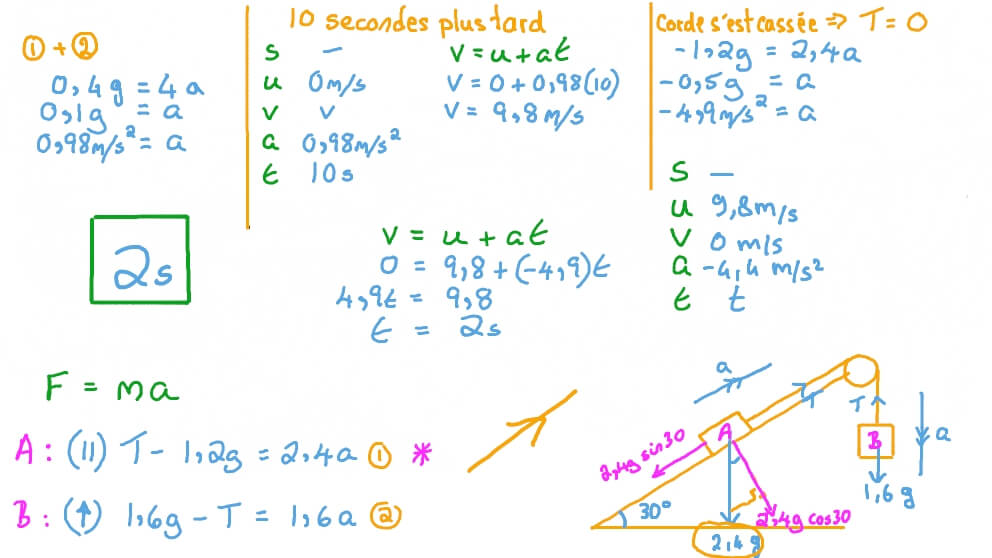 ① + ②
0,4g = 4a
0,1g = a
0,98m/s² = a
2s
10 secondes plus tard
s —
u 0m/s
v v
a 0,98m/s²
t 10s
v = u + at
v = 0 + 0,98(10)
v = 9,8m/s
Corde s'est cassée ⇒ T = 0
-1,2g = 2,4a
-0,5g = a
-4,9m/s² = a
s —
u 9,8m/s
v 0 m/s
a -4,4 m/s²
t t
v = u + at
0 = 9,8 + (-4,9)t
4,9t = 9,8
t = 2s
F = ma
A : (11) T - 1,2g = 2,4a ① *
B : (↑) 1,6g - T = 1,6a ②
a
T
T
A
B
a
2,4g sin30
1,6g
30°
2,4g cos30
2,4g